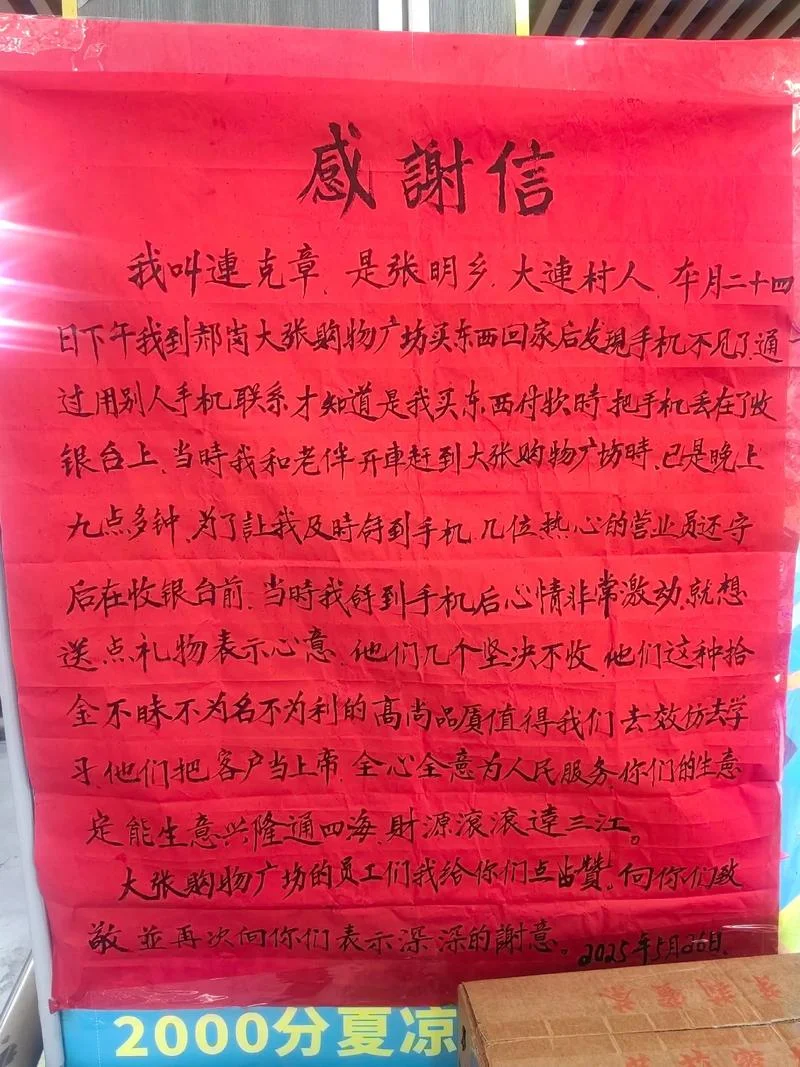 感謝信
我叫連克章，是张明乡，大連村人，本月二十四
日下午我到郝岗大张购物广场买东西回家后发現手机不见了通
过用别人手机联系才知道是我买东西付款時把手机丢在了收
银台上，当時我和老伴开車赶到大张购物广场時，已是晚上
九点多钟，为了讓我及時得到手机，几位热心的营业员还守
后在收银台前，当時我得到手机后心情非常激动，就想
送点礼物表示心意，他们几个坚决不收，他们这种拾
金不昧不为名不为利的高尚品質值得我们去效仿去学
习，他们把客户当上帝，全心全意为人民服务，你们的生意
定能生意兴隆通四海，財源滾滾達三江。
大张购物广场的员工们我给你们点赞。向你们致
敬並再次向你们表示深深的謝意。2025年5月26日.
2000分夏凉